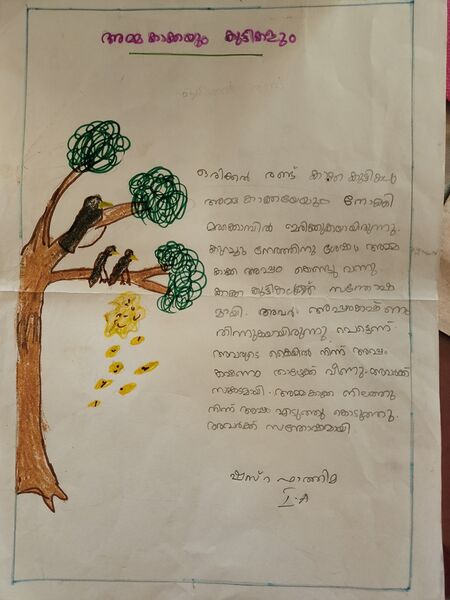 അമ്മ കാക്കയും കുട്ടികളും
ഒരിക്കൽ രണ്ട് കാക്ക കുട്ടികൾ
അമ്മ കാക്കയേയും നോക്കി
മരക്കൊമ്പിൽ ഇരിക്കുകയായിരുന്നു.
കുറച്ചു നേരത്തിനു ശേഷം അമ്മ
കാക്ക അപ്പം കൊണ്ടു വന്നു
കാക്ക കുട്ടികൾക്ക് സന്തോഷ
മായി. അവർ
തിന്നുകയായിരുന്നു പെട്ടെന്ന്
അവരുടെ കൈയിൽ നിന്ന് അപ്പം
താഴേക്ക് വീണു. അവർക്ക്
സങ്കടമായി. അമ്മകാക്ക നിലത്തു
നിന്ന് അപ്പം എടുത്തു കൊടുത്തു.
അവർക്ക് സന്തോഷമായി
ഫാത്തിമ
I-A